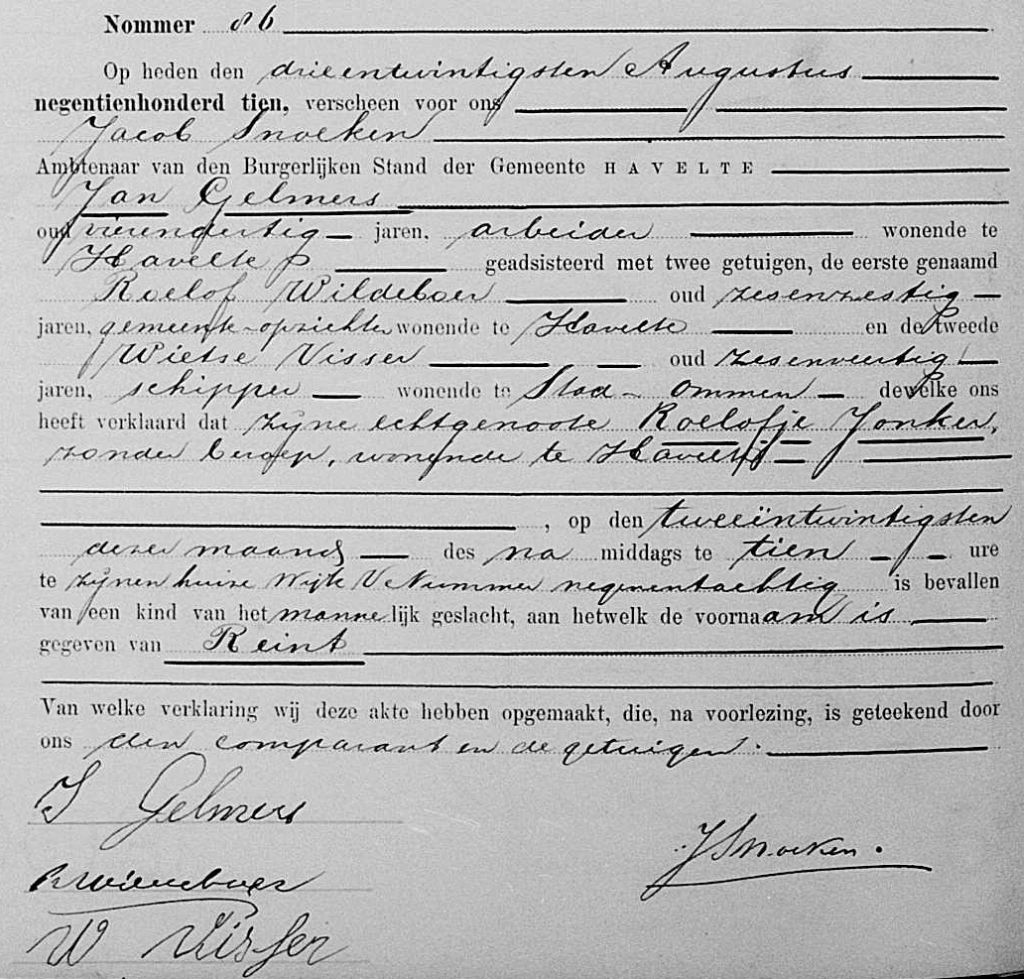 Nommer 86
Op heden den drieentwintigsten Augustus
negentienhonderd tien, verscheen voor ons
Jacob Snoeken
Ambtenaar van den Burgerlijken Stand der Gemeente HAVELTE
Jan Gelmers
oud vierendertig jaren, arbeider wonende te
Havelte geadsisteerd met twee getuigen, de eerste genaamd
Roelof Wildeboer oud zesenzestig
jaren, gemeente-opzichter wonende te Havelte en de tweede
Wietse Visser oud zesenveertig
jaren, schipper wonende te Stad-Ommen dewelke ons
heeft verklaard dat zijne echtgenoote Roelofje Jonker,
zonder beroep, wonende te Havelte
, op den tweeëntwintigsten
dezer maand des na middags te tien ure
te zijnen huize Wijk V Nummer negenentachtig is bevallen
van een kind van het mannelijk geslacht, aan hetwelk de voornaam is
gegeven van Reint
Van welke verklaring wij deze akte hebben opgemaakt, die, na voorlezing, is geteekend door
ons den comparant en de getuigen.
J Gelmers
JSnoeken.
R Wildeboer
W Visser